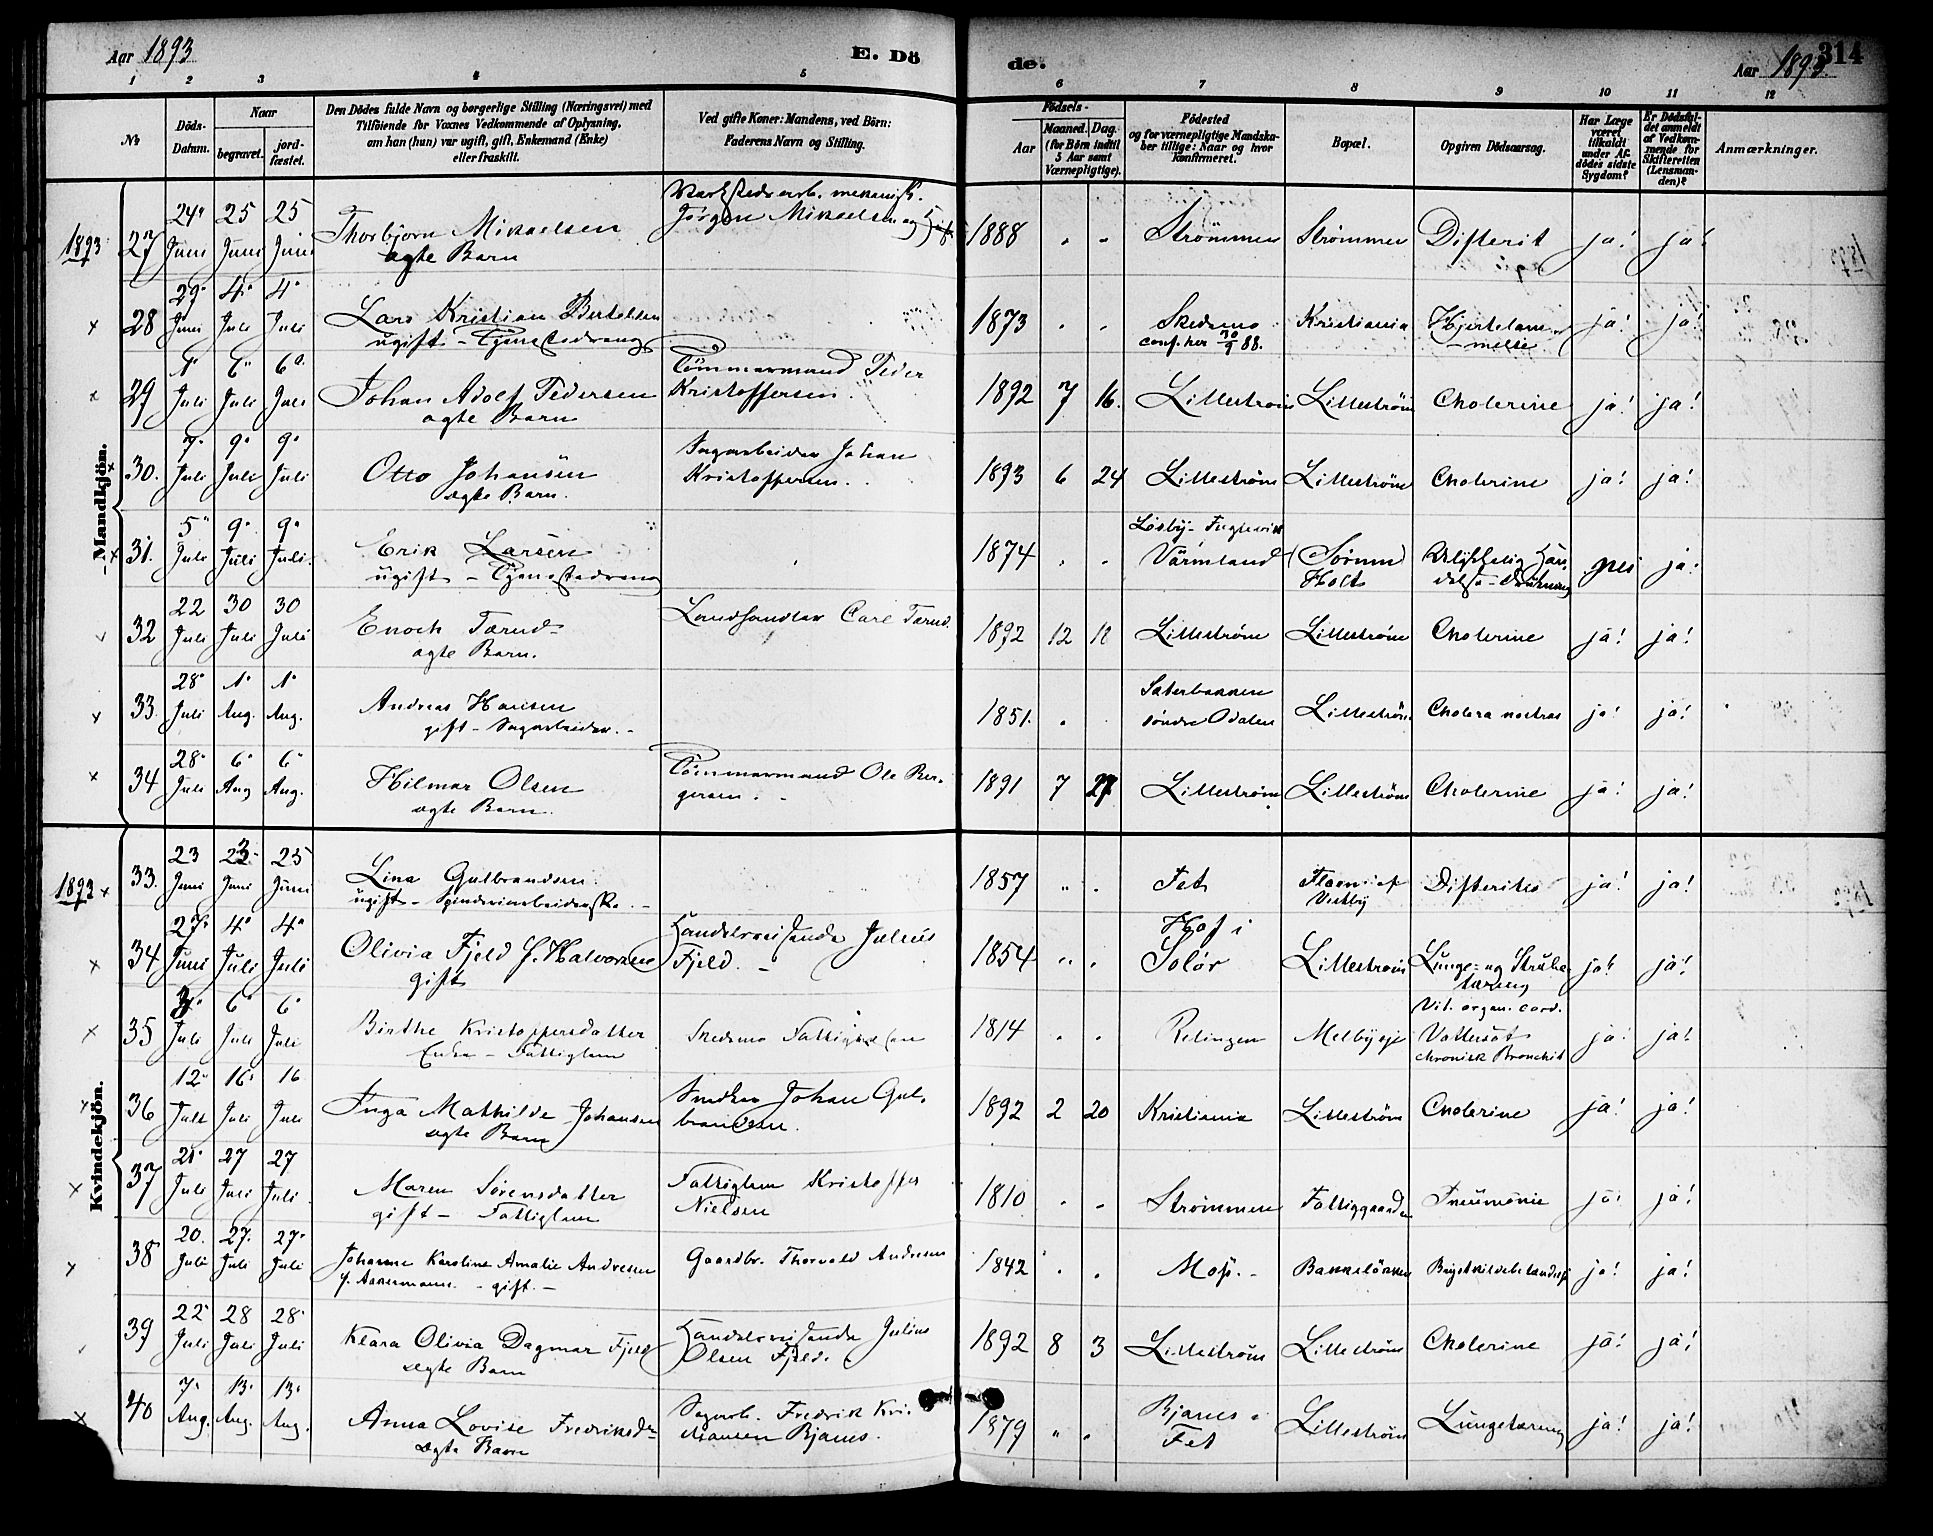 Aar 1893
E. Dö
de.
Aar 1893.
314
1 2 3 4 5 6 7 8 9 10 11 12
No
Döds-Datum.
Naar
begravet.
jord-fæstet.
Den Dödes fulde Navn og borgerlige Stilling (Næringsvei) med
Tilföiende for Voxnes Vedkommende af Oplysning,
om han (hun) var ugift, gift, Enkemand (Enke)
eller fraskilt.
Ved gifte Koner: Mandens, ved Börn:
Faderens Navn og Stilling.
Födsels-
Aar
Maaned. Dag.
(for Börn indtil
5 Aar samt
Værnepligtige).
Födested
og for værnepligtige Mandska-
ber tillige: Naar og hvor
konfirmeret.
Bopæl.
Opgiven Dödsaarsag.
Har Læge
været
tilkaldt
under Af-
dödes sidste
Sygdom?
Er Dödsfal-
det anmeldt
af Vedkom-
mende for
Skifteretten
(Lensman-
den)?
Anmærkninger.
Mandkjön.
1893
27 24 Juni 25 Juni 25 Juni Thorbjørn Mikaelsen ægte Barn Jørgen Mikaelsen 1888 Strömmen Strömmen Difterit ja! ja!
28 29 Juni 4 Juli 4 Juli Lars Kristian Bertelsen ugift - Tjenestedreng 1873 Skedsmo conf. her 30/9 88. Kristiania Hjertelam-melse ja! ja!
29 1 Juli 6 Juli 6 Juli Johan Adolf Pedersen ægte Barn Tömmermand Peder Kristoffersen. 1892 7 16. Lillestrøm Lillestrøm Cholerine ja! ja!
30. 7 Juli 9 Juli 9 Juli Otto Johansen ægte Barn. Sagarbeider Johan Kristoffersen. 1893 6 24 Lillestrøm Lillestrøm Cholerine ja! ja!
31. 5 Juli 9 Juli 9 Juli. Erik Larsen ugift - Tjenestedreng 1874 Värmland (Sørum) Holt Ulykkelig Hændelse - Drukning nei ja!
32 22 Juli 30 Juli 30 Juli Enoch Tærud ægte Barn. Landhandler Carl Tærud. 1892 12 11 Lillestrøm Lillestrøm Cholerine ja! ja!
33. 28 Juli 1 Aug. 1 Aug. Andreas Hansen gift - Sagarbeider. 1851. Säterbakken söndre Odalen Lillestrøm Cholera nostras ja! ja!
34 28 Juli 6 Aug 6 Aug. Hilmar Olsen ægte Barn. Tömmermand Ole Bergersen. 1891 7 27 Lillestrøm Lillestrøm Cholerine ja! ja!
Kvindekjön.
1893
33. 23 Juni 23 Juni 25 Juni Lina Gulbrandsen. ugift - Spinderiarbeiderske. 1857 Fet Difterites ja! ja!
34 27 Juni 4 Juli 4 Juli Olivia Fjeld f. Halvorsen gift Handelsreisende Julius Fjeld. 1854 Hof i Solør Lillestrøm Lunge- og Strubetæring ja! ja!
35 3 Juli 6 Juli 6 Juli Birthe Kristoffersdatter Enke - Fattiglem Skedsmo 1814 Relingen Melbyeje Vit. organ. cord. Vattersot chronisk Bronchit ja! ja!
36 12 Juli 16 Juli 16 Juli Inga Mathilde Johansen ægte Barn Snedker Johan Gulbrandsen. 1892 2 20 Kristiania Lillestrøm Cholerine ja! ja!
37 21 Juli 27 Juli 27 Juli. Maren Sörensdatter gift - Fattiglem Fattiglem Kristoffer Nielsen 1810 Strømmen Fattiggaarden Pneumonie ja! ja!
38 20. Juli 27. Juli 27 Juli Johanne Karoline Amalie Andresen f. Aakermann. - gift. Gaardbr. Thorvald Andresen 1842 Moss. Bakkeløkken ja! ja!
39 22 Juli 28 Juli 28 Juli Klara Olivia Dagmar Fjeld ægte Barn Handelsreisende Julius Olsen Fjeld. 1892 8 3 Lillestrøm Lillestrøm Cholerine ja! ja!
40 7 Aug. 13 Aug. 13 Aug. Anna Lovise Fredriksdr ægte Barn Sagarb. Fredrik Kristiansen Bjanes. 1879 Bjanes i Fet Lillestrøm Lungetæring ja! ja!